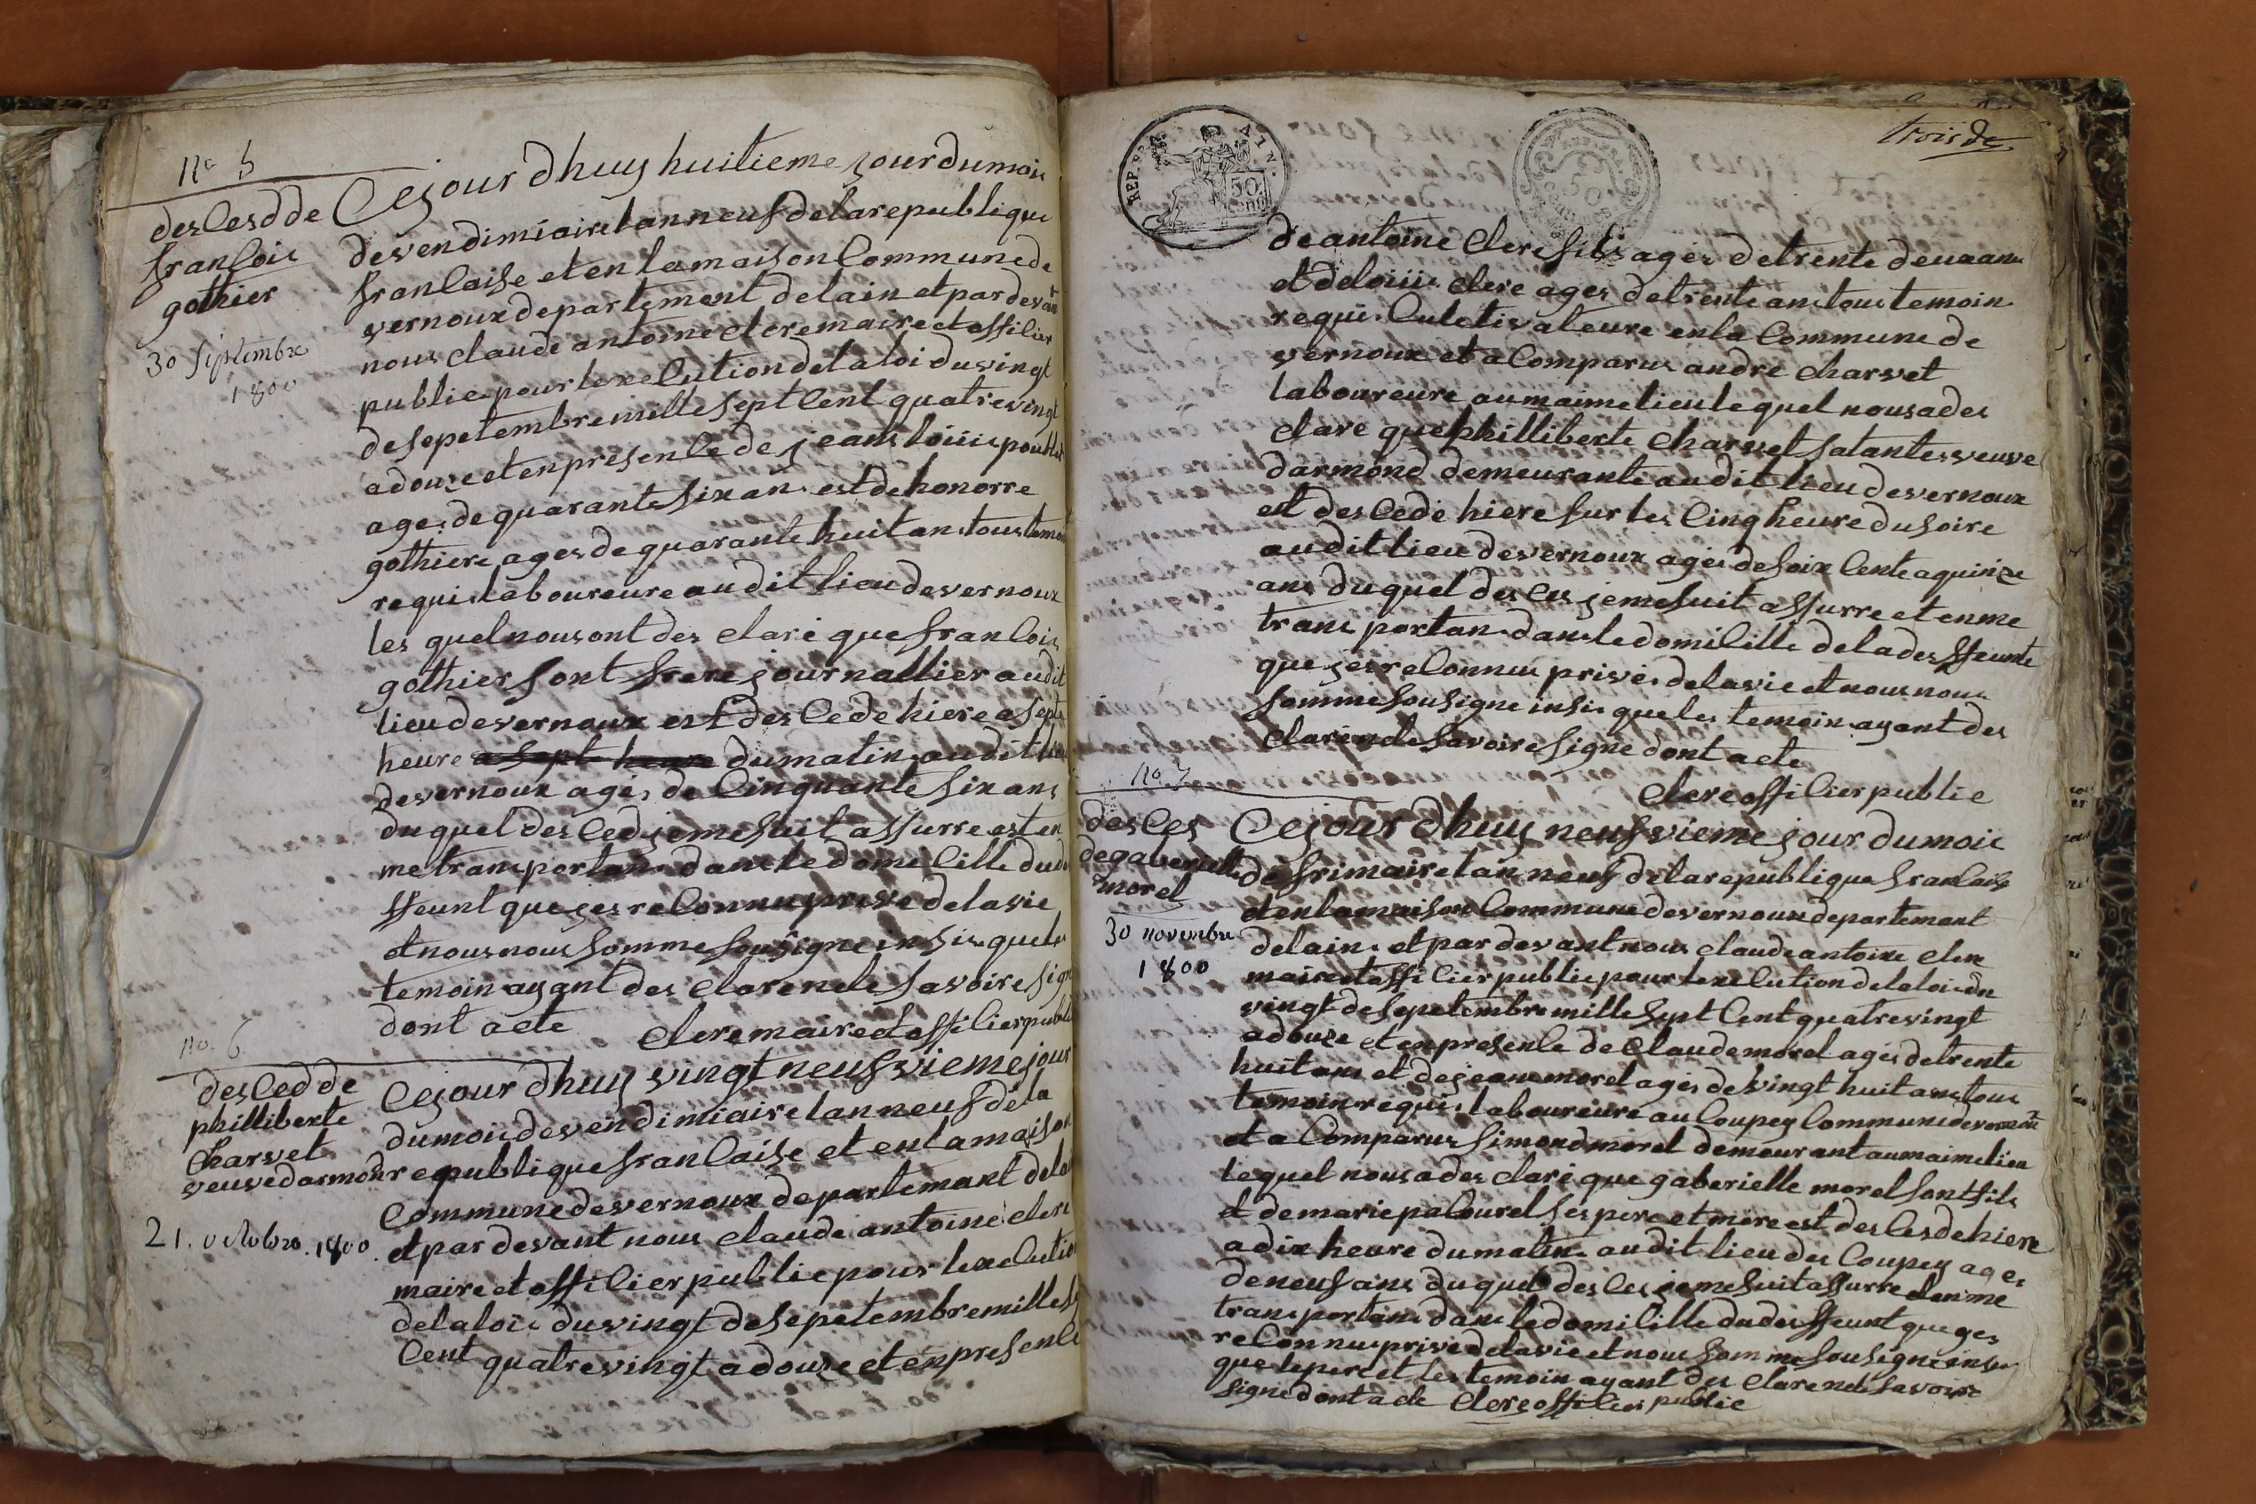 no 5
desCesd de
franCois
gothier
30 septembre
1800
Cejour dhuy huitieme jour dumois
devendimiaire lanneuf delarepublique
franCaise et en la maison Commune de
vernoux departement delain et par devan
nous claude antoine clere maire et offiCier
publie pour lexeCution de la loi du vingt
desepetembre mille sept Cent quatrevingt
adouze et en presenCe de jean loiiis poublet
ages de quarante six ans est de honorre
gothiere ages de quarante huit ans tous temoin
requis laboureure au dit lieu devernoux
les quel nous ont des claré que franCois
gothier sont frere journallier au dit
lieu devernoux est desCedé hiere a sept
heure a sept heure dumatin audit lieu
devernoux ages de Cinquante six ans
duquel desCed jemesuit assurre est en
me transportans dans le domiCille dudes
ffeunt que jes reConnus privé delavie
et nous nous somme sousigne insis que les
temoin ayant des clarende savoire signe
dont acte clere maire et offiCier publie
no. 6
desCed de
philliberte
Charvet
veuve darmond
21. octobre. 1800.
Cejour dhuy vingt neufvieme jour
dumois devendimiaire lanneuf dela
republique franCaise et en la maison
Commune devernoux departemant delain
et par devant nous claude antoine clere
maire et offiCier publie pour lexeCution
delalois du vingt desepetembre mille sept
Cent quatrevingt adouze et en presenCe
trois de
REP. FRA
50
de antoine clere fils ages detrente deuxans
et deloiiis clere ages detrente ans tous temoin
requis Culetivaleure en la Commune de
vernoux et a Comparus andré charvet
laboureure aumaime lieu le quel nous a des
claré que philliberte charvet satantes veuve
darmond demeurante au dit lieu devernoux
est desCedé hiere sur les Cinq heure du soire
au dit lieu devernoux ages desoix Cente aquinze
ans duquel desCes jemesuit assurre et en me
trans portans dans le domiCille de la des ffeunte
que jes reConnus privés delavie et nous nous
somme sousigne insis que les temoin ayant des
clarende savoire signe dont acte
clere offiCier publie
no. 7
desCes
degaberielle
morel
30 novembre
1800
Cejour dhuy neufvieme jour du mois
de frimaire lan neuf de la republique franCaise
et en la maison Commune devernoux departemant
delain et par devant nous claude antoine clere
maire et offiCier publie pour lexeCution de la loi du
vingt desepetembre mille sept Cent quatrevingt
adouze et en presenCe de Claude morel ages detrente
huit ans et de jean morel ages de vingt huit ans tous
temoin requis laboureure au Coupey Commune devernoux
et a Comparus simond morel demeurant aumaime lieu
le quel nous a des claré que gaberielle morel sont fils
et de marie paCourel ses pere et mere est desCes de hiere
a dix heure du matin au dit lieu des Coupey ages
de neuf ans duquel desCes jemesuit assurre et en me
transportans dans le domiCille du desffeunt que jes
reConnus privé de lavie et nous somme sousigne insis
que le pere et les temoin ayant des clarende savoire
signe dont acte clere offiCier publie